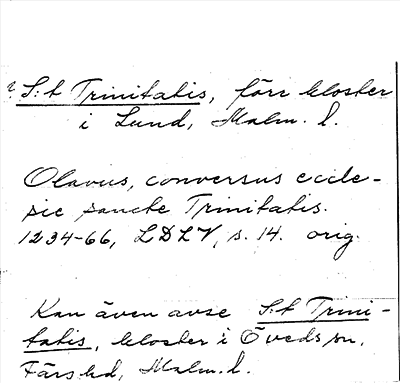 ? S:t Trinitatis, förr kloster
i Lund, Malm. l.
Olavus, conversus eccle-
sie sancte Trinitatis.
1234-66, LDLV, s. 14. orig.
Kan även avse S:t Trini-
tatis, kloster i Öveds sn,
Färs hd, Malm. l.